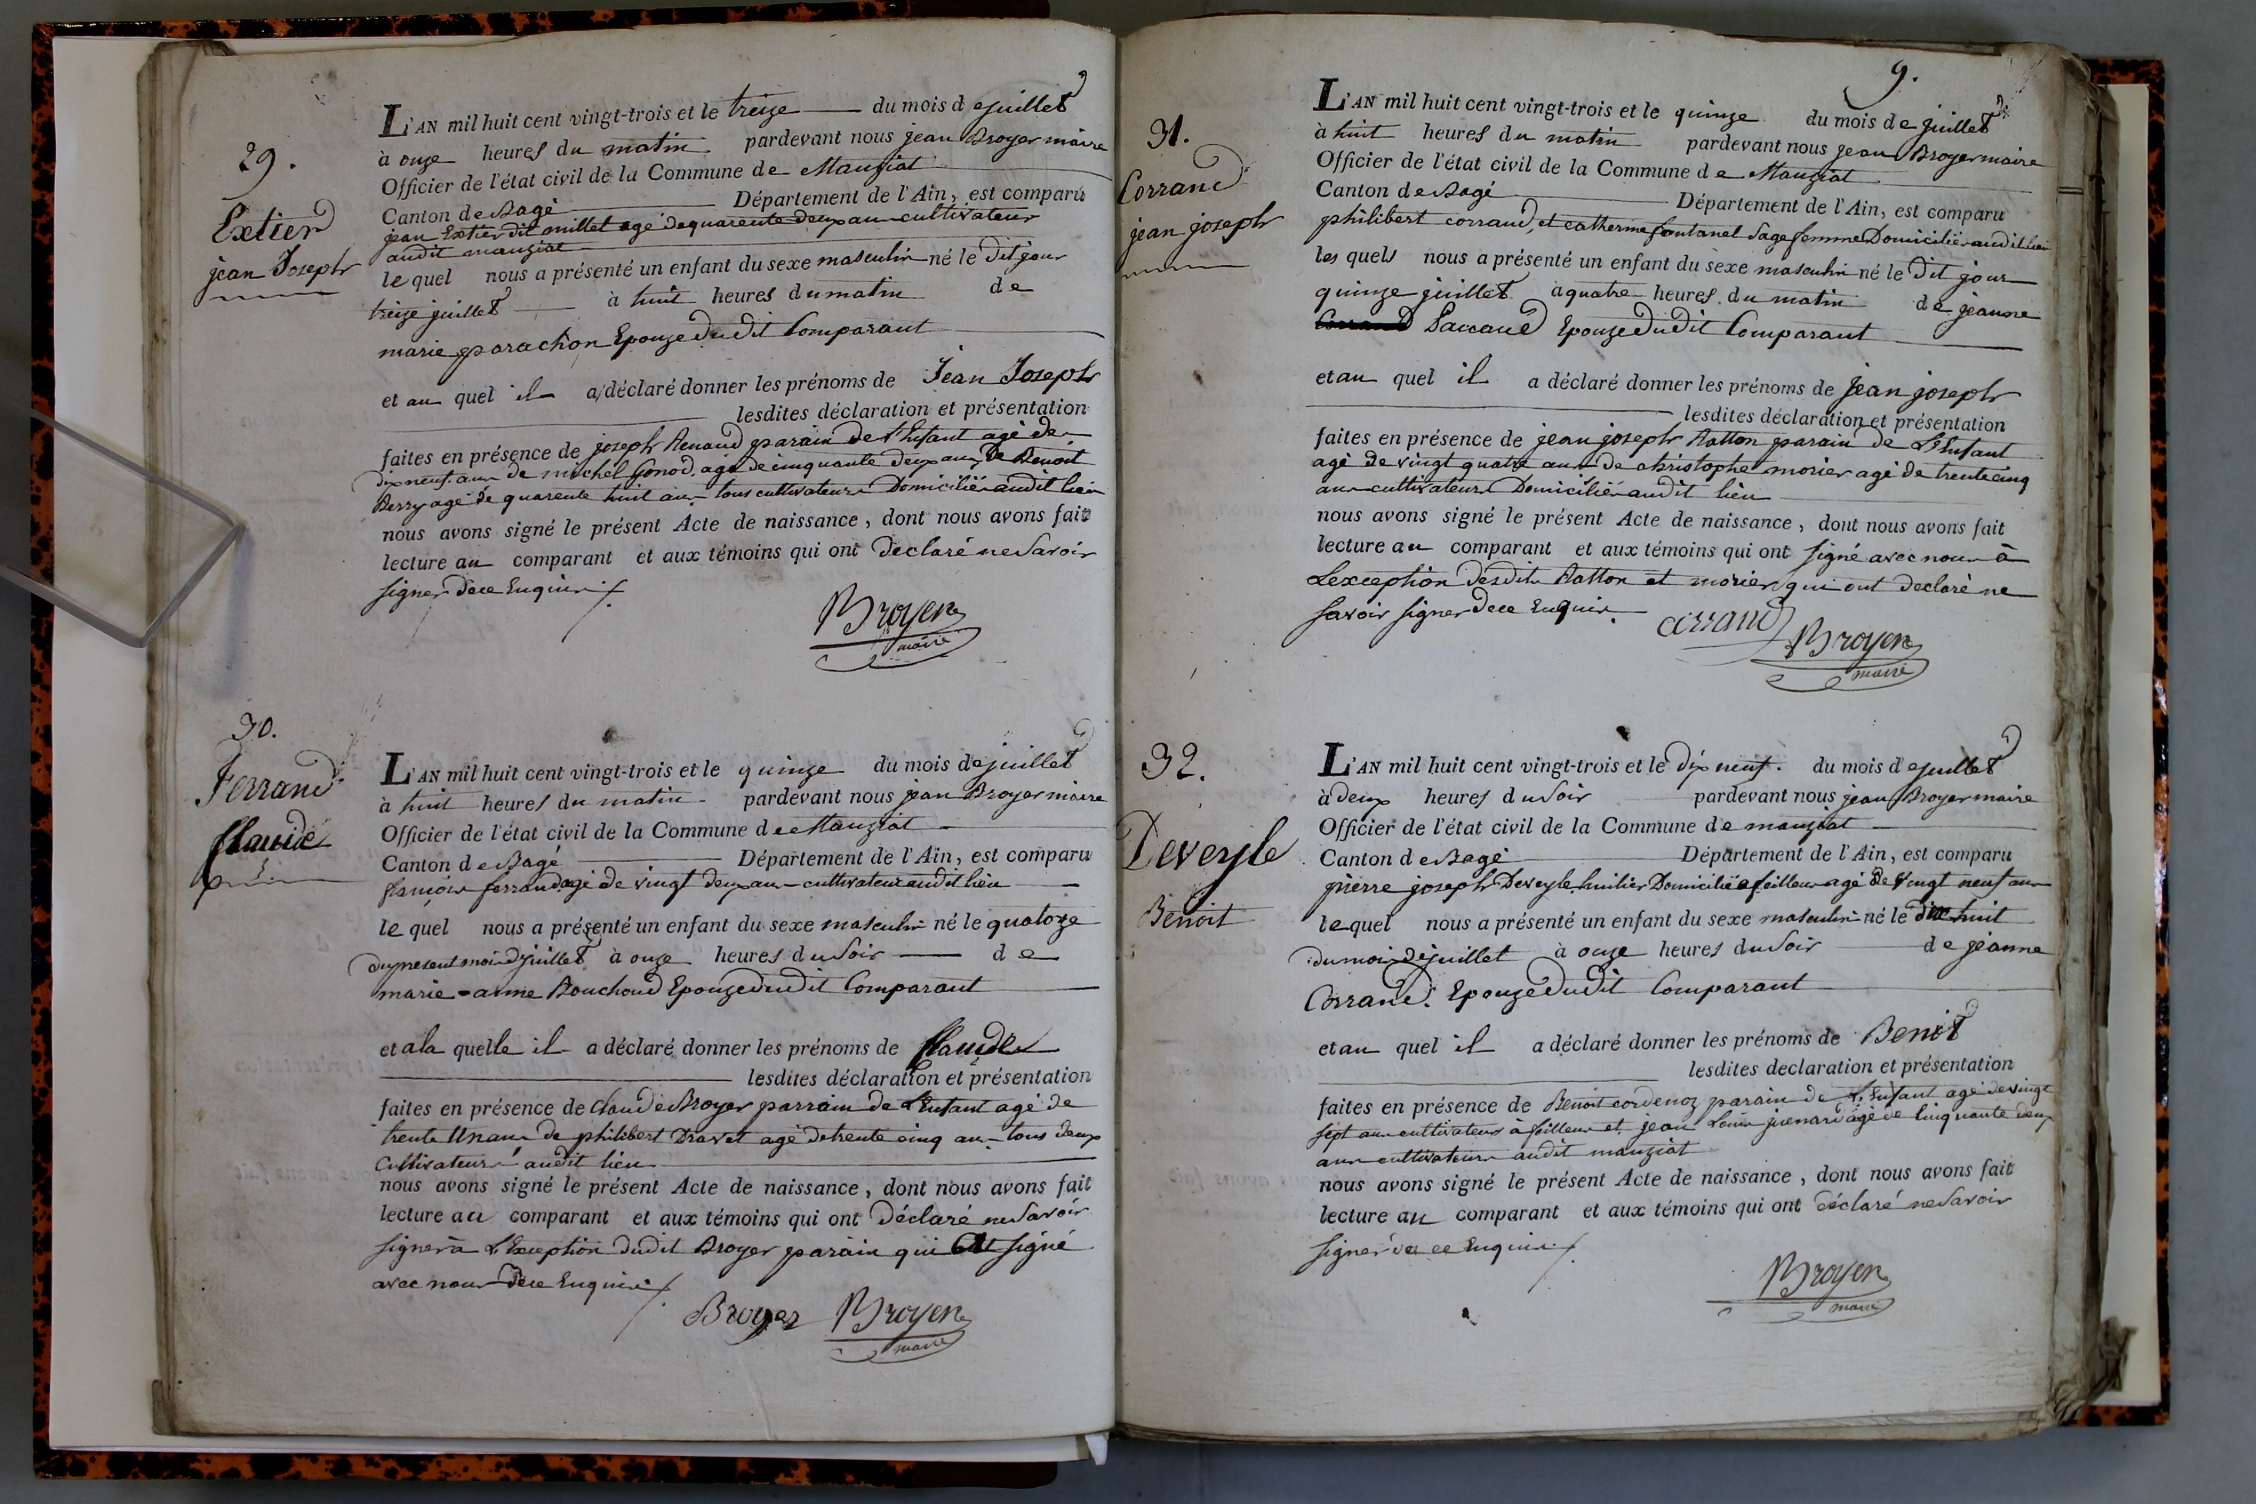 29.
Extier
jean Joseph
L'AN mil huit cent vingt-trois et le treize du mois de juillet
à onze heures du matin pardevant nous jean Broyer maire
Officier de l'état civil de la Commune de Manziat
Canton de Bagé Département de l'Ain, est comparu
jean Extier dit millet agé de quarente deux ans cultivateur
audit manziat
le quel nous a présenté un enfant du sexe masculin né le dit jour
treize juillet à huit heures du matin de
marie parachon Epouze du dit Comparant
et au quel il a déclaré donner les prénoms de Jean Joseph
lesdites déclaration et présentation
faites en présence de joseph Renaud parain de l'Enfant agé de
dix neuf ans de michel Gonod agé de cinquante deux ans, De Benoit
Berry agé de quarente huit ans tous cultivateurs Domiciliés audit lieu
nous avons signé le présent Acte de naissance, dont nous avons fait
lecture au comparant et aux témoins qui ont declaré ne Savoir
signer de ce Enquis
Broyer
maire
30.
Ferrand
Claude
L'AN mil huit cent vingt-trois et le quinze du mois de juillet
à huit heures du matin pardevant nous jean Broyer maire
Officier de l'état civil de la Commune de Manziat
Canton de Bagé Département de l'Ain, est comparu
françois ferrand agé de vingt deux ans cultivateur audit lieu
le quel nous a présenté un enfant du sexe masculin né le quatorze
du present mois de juillet à onze heures du Soir de
marie-anne Bouchoud Epouze du dit Comparant
et a la quelle il a déclaré donner les prénoms de Claude
lesdites déclaration et présentation
faites en présence de Claude Broyer parrain de L'Enfant agé de
trente Un ans de philibert Dravet agé de trente cinq ans tous deux
Cultivateurs audit lieu
nous avons signé le présent Acte de naissance, dont nous avons fait
lecture au comparant et aux témoins qui ont Déclaré ne Savoir
signer à L'Exception dudit Broyer parain qui a signé
avec nous De ce Enquis
Broyer Broyer
maire
9.
31.
Corrand
jean joseph
L'AN mil huit cent vingt-trois et le quinze du mois de juillet
à huit heures du matin pardevant nous jean Broyer maire
Officier de l'état civil de la Commune de Manziat
Canton de Bagé Département de l'Ain, est comparu
philibert corrand, et catherine fontanel Sage femme Domiciliés audit lieu
les quels nous a présenté un enfant du sexe masculin né le dit jour
quinze juillet a quatre heures du matin de jeanne
Paccaud Epouze du dit Comparant
et au quel il a déclaré donner les prénoms de Jean joseph
lesdites déclaration et présentation
faites en présence de jean joseph Ratton parain de L'Enfant
agé de vingt quatre ans de christophe morier agé de trente cinq
ans cultivateurs Domiciliés audit lieu
nous avons signé le présent Acte de naissance, dont nous avons fait
lecture au comparant et aux témoins qui ont signé avec nous à
Lexception desdits Ratton et morier qui ont declaré ne
savoir signer de ce Enquis.
corrand Broyer
maire
32.
Deveyle
Benoit
L'AN mil huit cent vingt-trois et le dix neuf. du mois de juillet
à deux heures du Soir pardevant nous jean Broyer maire
Officier de l'état civil de la Commune de manziat
Canton de Bagé Département de l'Ain, est comparu
pierre joseph Deveyle huilier Domicilié a feillens agé De vingt neuf ans
le quel nous a présenté un enfant du sexe masculin né le dix huit
du mois de juillet à onze heures du Soir de jeanne
Corrand. Epouze du dit Comparant
et au quel il a déclaré donner les prénoms de Benoit
lesdites declaration et présentation
faites en présence de Benoit cordenoz parain de L'Enfant agé de vingt
sept ans cultivateur à feillens et jean Louis juenard agé de Cinquante deux
ans cultivateurs audit manziat
nous avons signé le présent Acte de naissance, dont nous avons fait
lecture au comparant et aux témoins qui ont déclaré ne Savoir
signer de ce Enquis
Broyer
maire